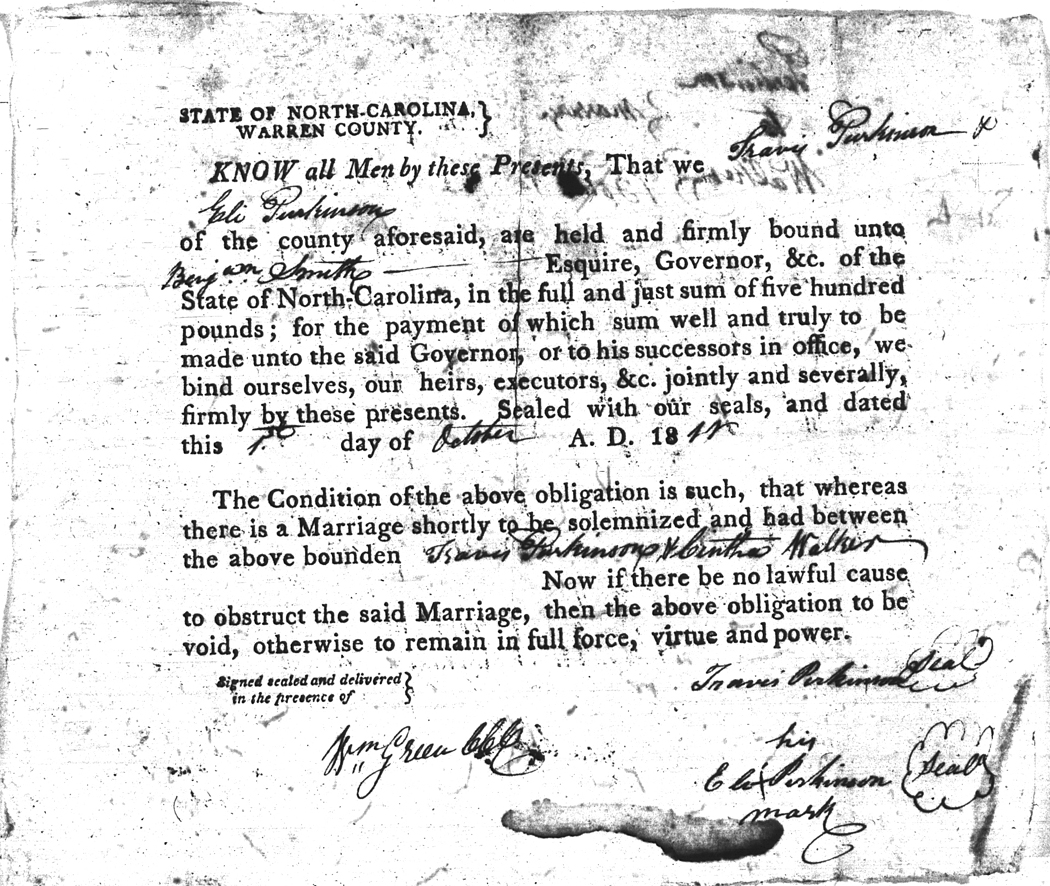 STATE OF NORTH-CAROLINA, }
WARREN COUNTY. }
KNOW all Men by these Presents, That we Travis Perkinson &
Eli Perkinson
of the county aforesaid, are held and firmly bound unto
Benjamn Smith Esquire, Governor, &c. of the
State of North-Carolina, in the full and just sum of five hundred
pounds; for the payment of which sum well and truly to be
made unto the said Governor, or to his successors in office, we
bind ourselves, our heirs, executors, &c. jointly and severally,
firmly by these presents. Sealed with our seals, and dated
this 1st day of October A. D. 1811
The Condition of the above obligation is such, that whereas
there is a Marriage shortly to be solemnized and had between
the above bounden Travis Perkinson & Cintha Walker
Now if there be no lawful cause
to obstruct the said Marriage, then the above obligation to be
void, otherwise to remain in full force, virtue and power.
Signed sealed and delivered }
in the presence of }
Travis Perkinson Seal
Wm Green
his
Eli Perkinson Seal
mark